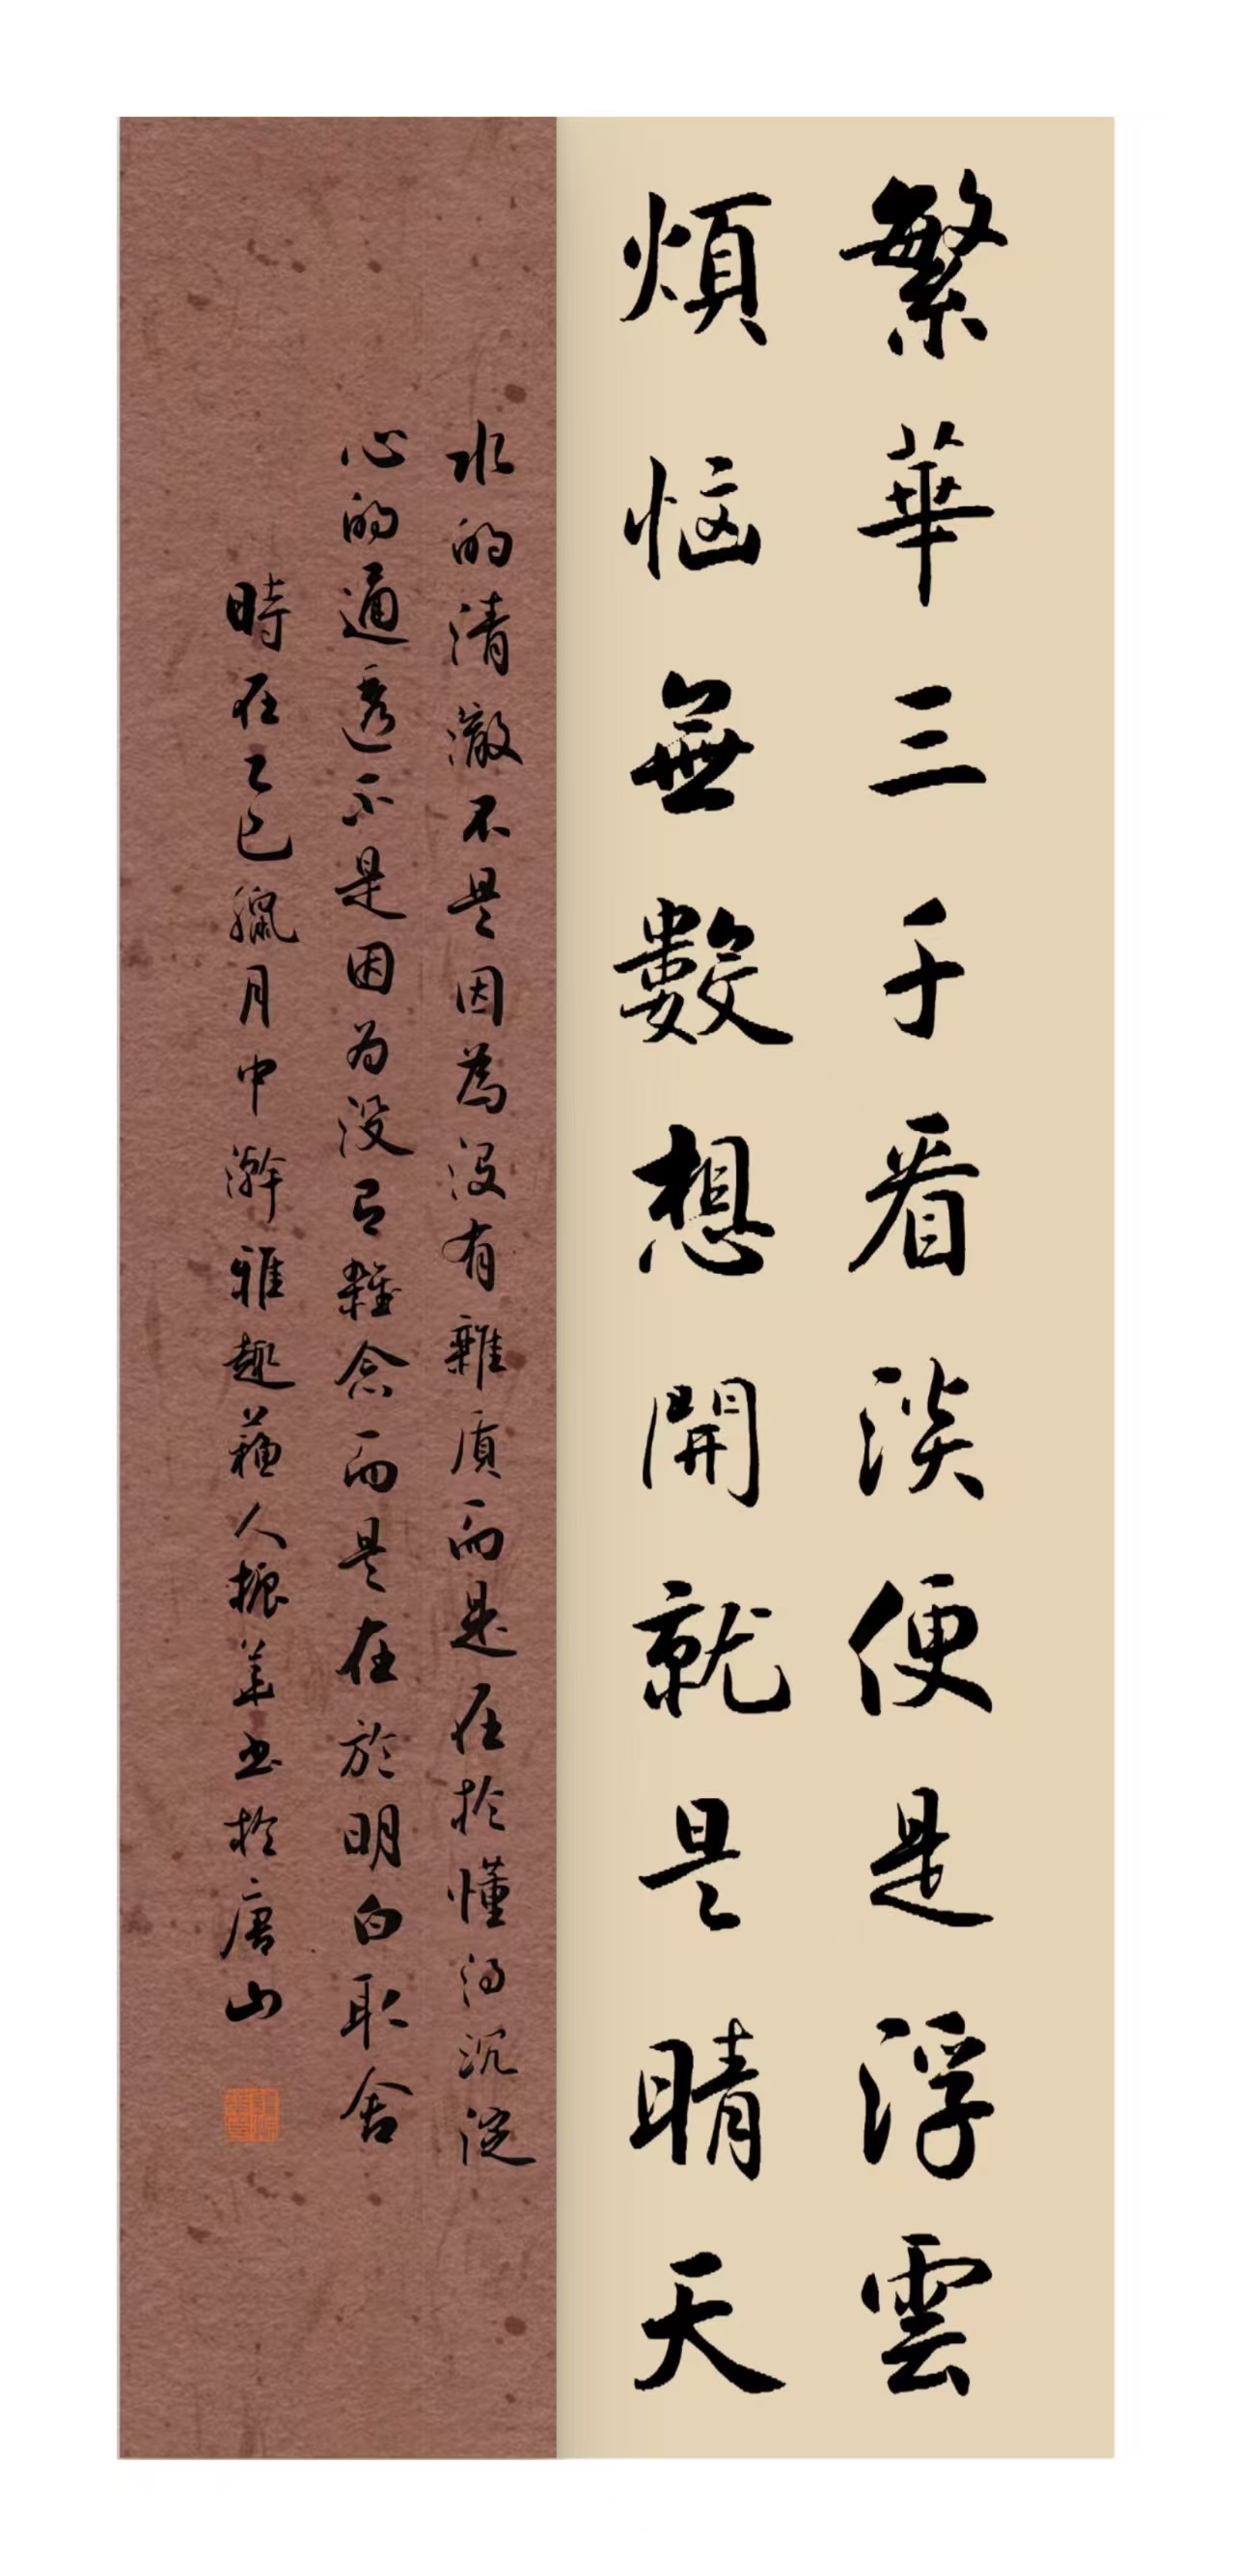 繁華三千看淡便是浮雲
煩惱無數想開就是晴天
水的清澈不是因為没有雜质而是在於懂得沉淀
心的通透不是因为没有雜念而是在於明白取舍
時在乙巳臘月中瀚雅趣蘓人振華书於唐山